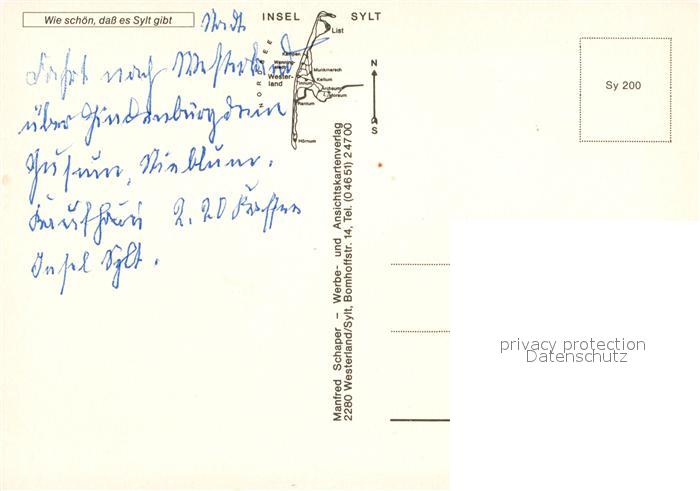 Wie schön, daß es Sylt gibt
Stadt
Fahrt nach Westerland
über Hindenburgdamm
Husum, Nieblum.
Kaufhaus 2.20
Insel Sylt.
INSEL SYLT
NORDSEE
List
Kampen
Wenning-
Munkmarsch
Wester-
land
Keitum
Tinnum
Archsum
Morsum
Rantum
Hörnum
N
S
Manfred Schaper – Werbe- und Ansichtskartenverlag
2280 Westerland/Sylt, Bomhoffstr. 14, Tel. (04651) 24700
Sy 200
privacy protection
Datenschutz